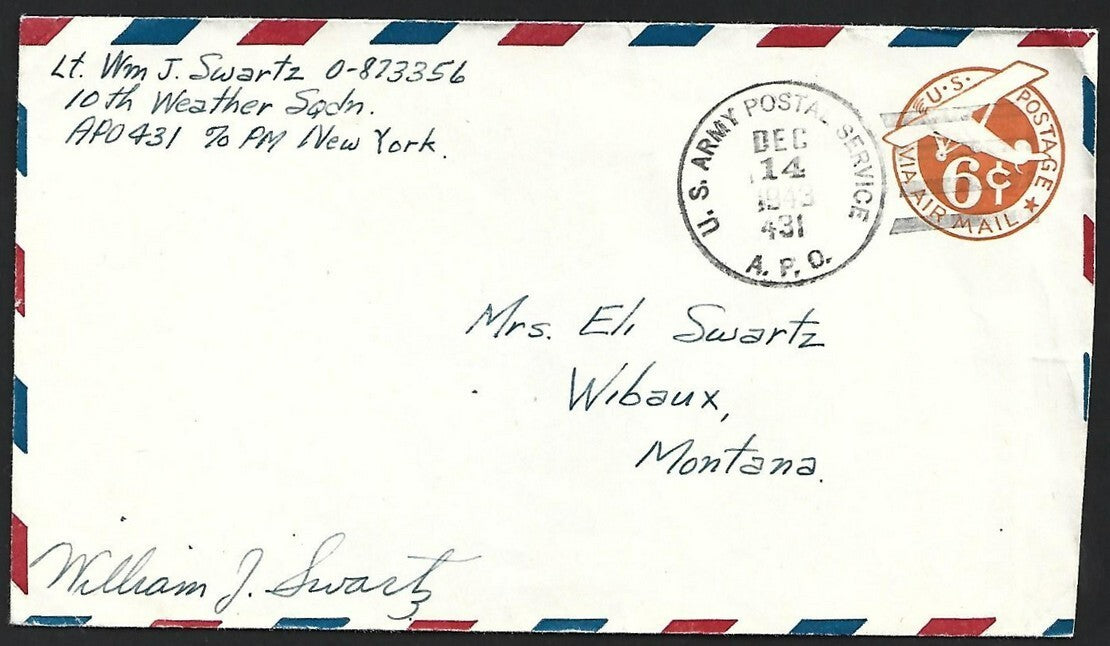 Lt. Wm J. Swartz O-873356
10th Weather Sqdn.
APO 431 % PM New York.
U. S. ARMY POSTAL SERVICE
DEC
14
1943
431
A. P. O.
U.S. POSTAGE
6¢
VIA AIR MAIL
Mrs. Eli Swartz
Wibaux,
Montana.
William J. Swartz